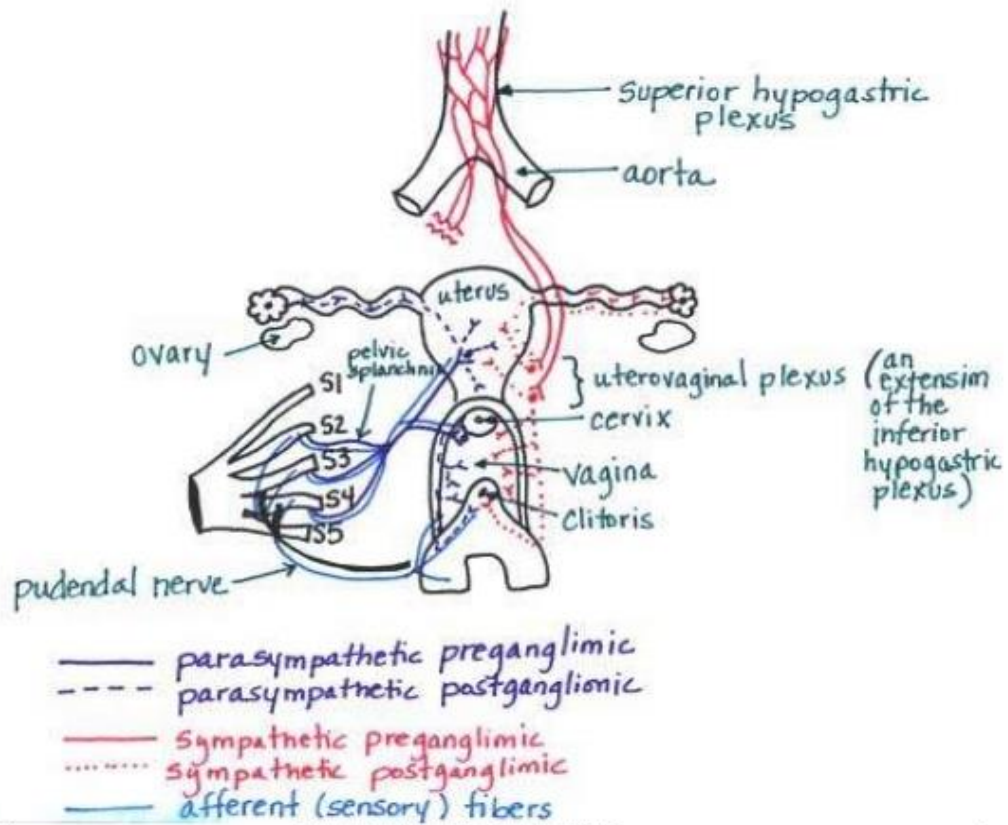 Superior hypogastric
plexus
aorta
uterus
ovary
pelvic
splanchnic
S1
S2
S3
S4
S5
uterovaginal plexus (an
extension
of the
inferior
hypogastric
plexus)
cervix
vagina
clitoris
pudendal nerve
parasympathetic preganglionic
parasympathetic postganglionic
sympathetic preganglionic
sympathetic postganglionic
afferent (sensory) fibers